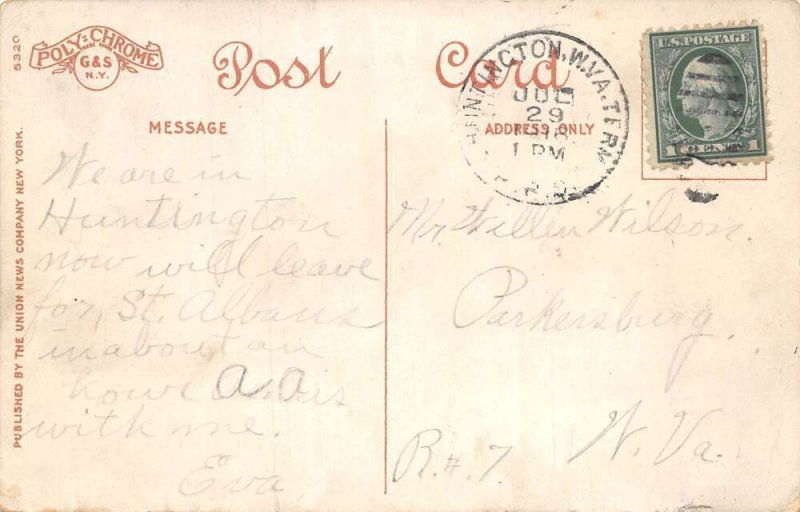 5320
POLY-CHROME
G&S
N.Y.
Post Card
MESSAGE
ADDRESS ONLY
HUNTINGTON, W.VA. TERM
JUL
29
1 PM
R.P.O.
U.S. POSTAGE
1 CENT 1
PUBLISHED BY THE UNION NEWS COMPANY NEW YORK.
We are in
Huntington
now will leave
for St. Albans
in about an
hour a. a is
with me.
Eva
Mr. Willen Wilson.
Parkersburg.
W. Va.
R.#.7.